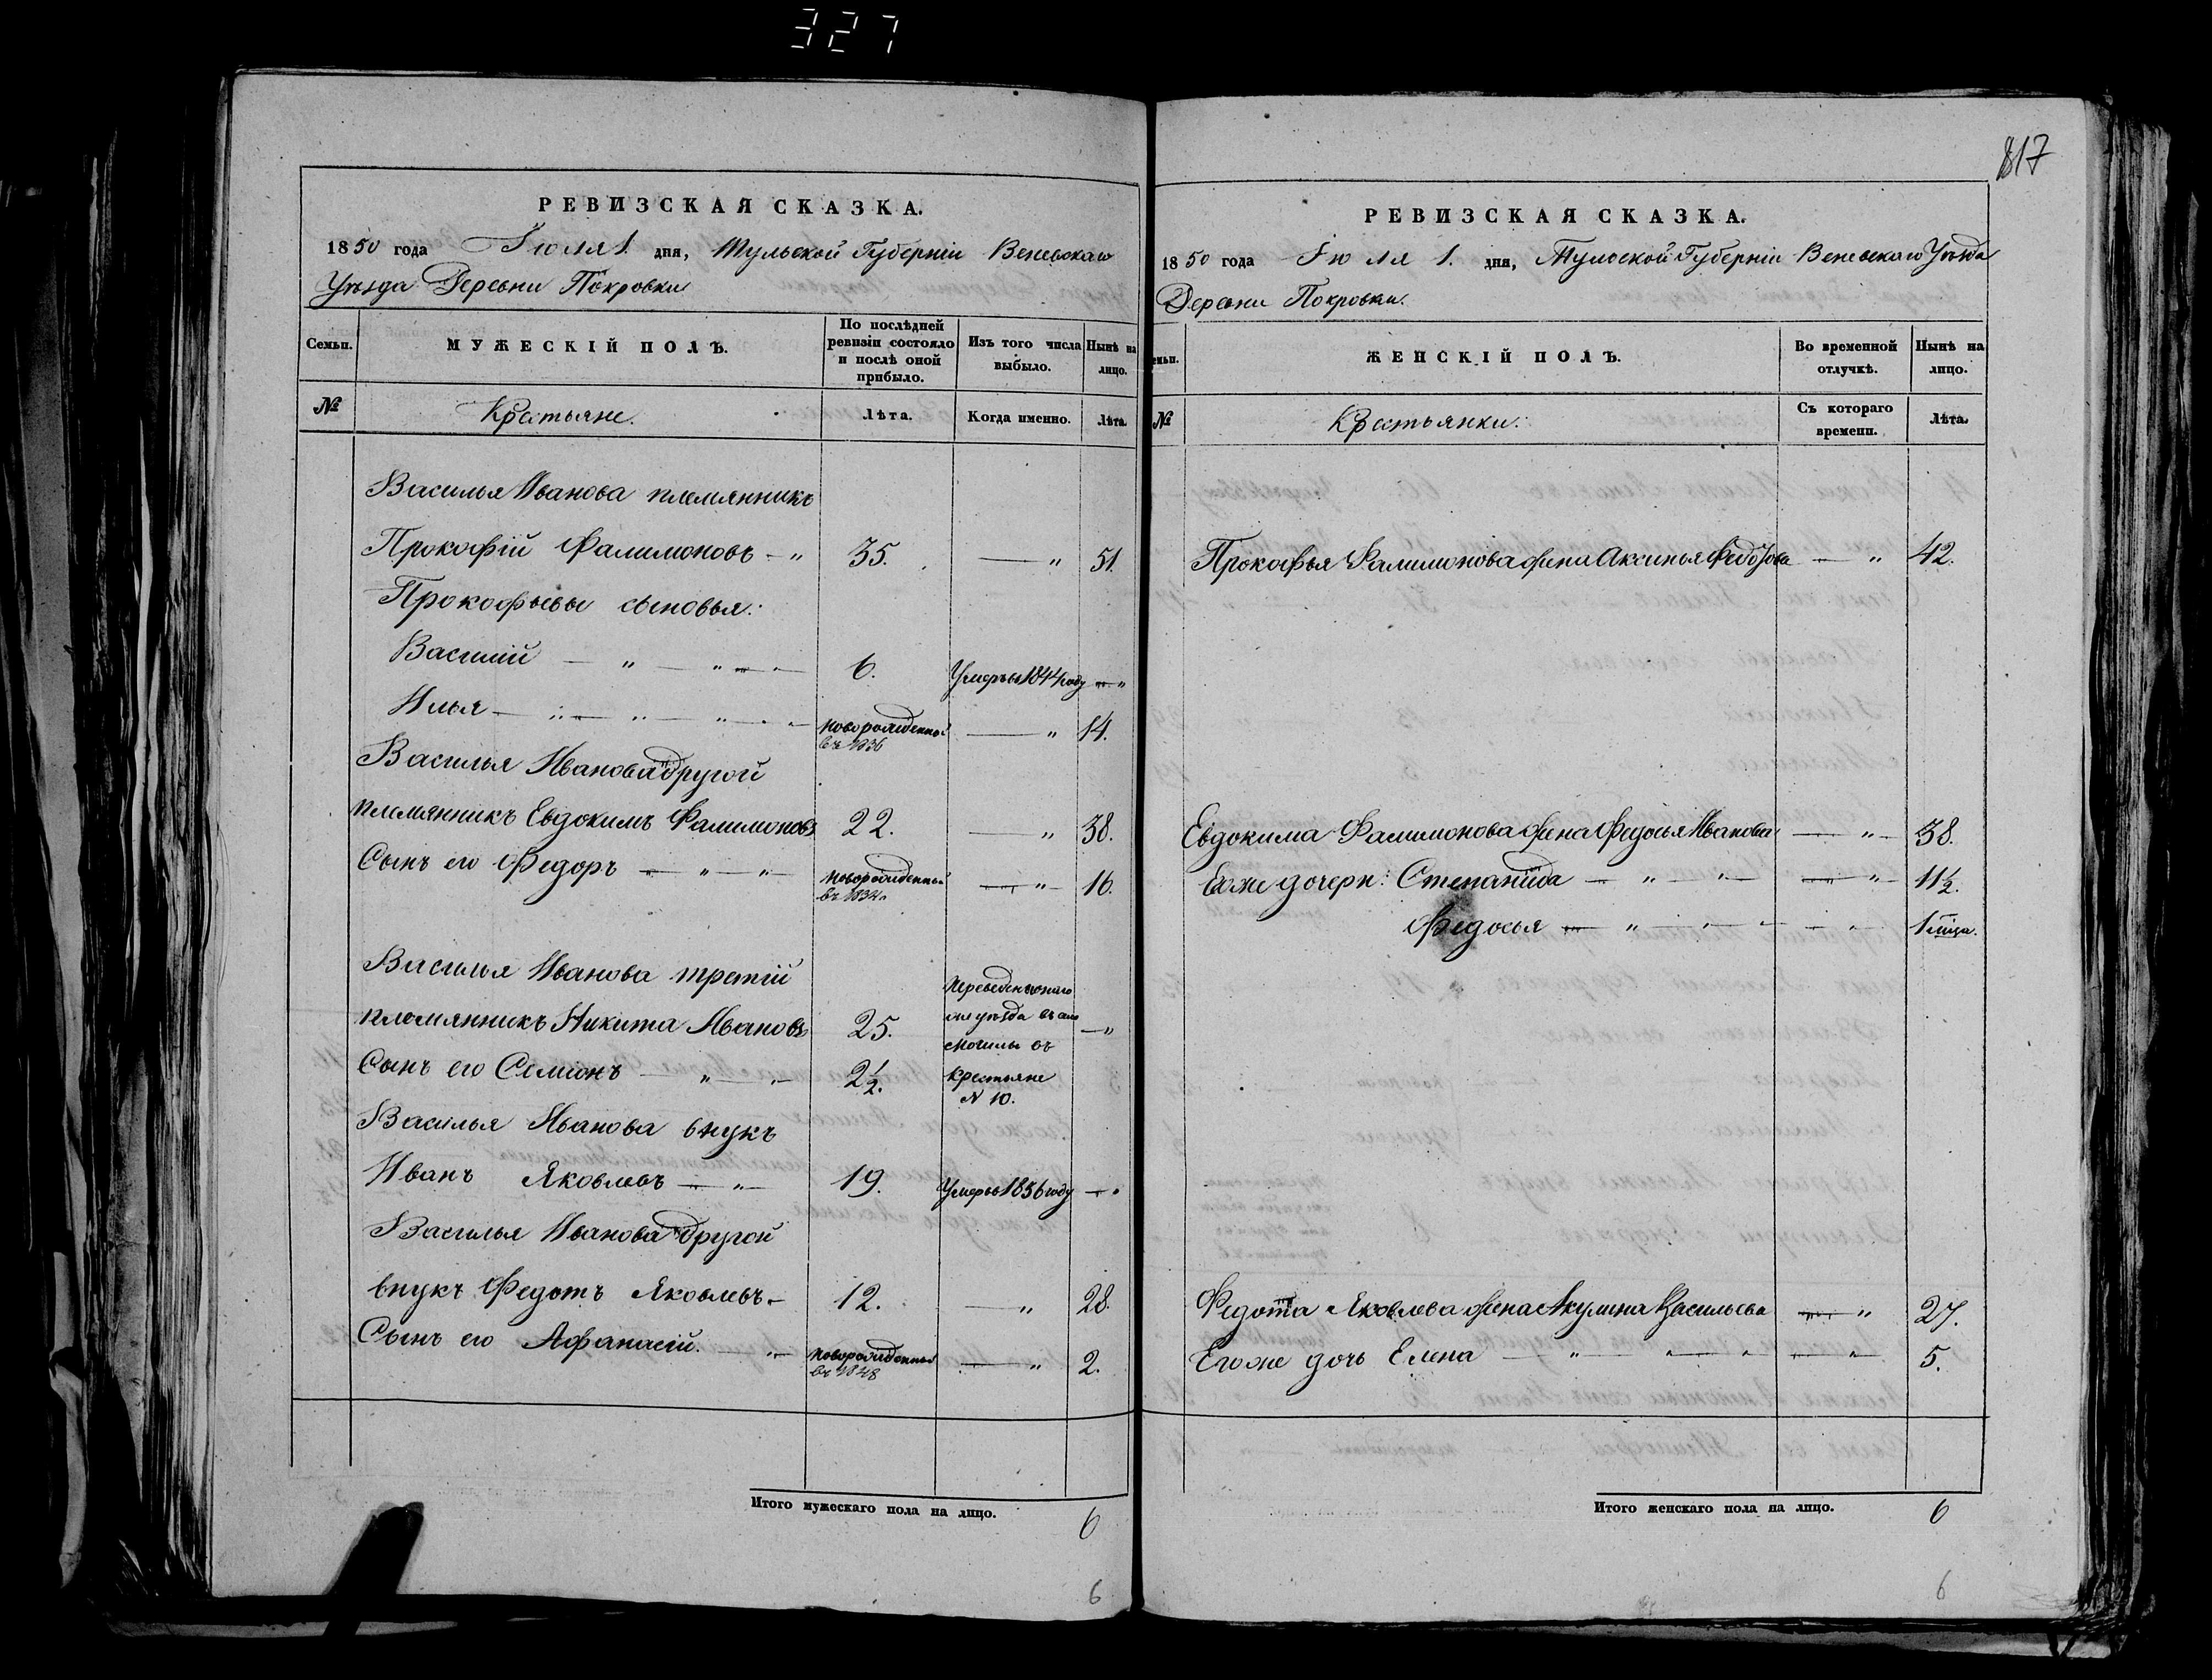 327
817
РЕВИЗСКАЯ СКАЗКА.
1850 года Іюля 1. дня, Тульской Губерніи Веневскаго
Уѣзда Деревни Покровки
Семьи.
МУЖЕСКІЙ ПОЛЪ.
По послѣдней ревизіи состояло и послѣ оной прибыло.
Изъ того числа выбыло.
Нынѣ на лицо.
№
Крестьяне.
Лѣта.
Когда именно.
Лѣта.
Василья Иванова племянникъ
Прокофій Фалимоновъ - " 35. — " 51.
Прокофьевы сыновья:
Василій — " — " — 6. Умеръ въ 1844 году — "
Илья — " — " — " — новорожденный въ 1836 — " 14.
Василья Иванова другой
племянникъ Евдокимъ Фалимоновъ 22. — " 38.
Сынъ его Федоръ — " — " новорожденный въ 1834 — " — 16.
Василья Иванова третій
племянникъ Никита Ивановъ 25. — "
Сынъ его Семіонъ — " — " 2½.
Переведены онаго
же уѣзда въ село
Мочилы въ
крестьяне
N 10.
Василья Иванова внукъ
Иванъ Яковлевъ — " 19. Умеръ въ 1836 году — "
Василья Иванова другой
внукъ Федотъ Яковлевъ - 12. — " 28.
Сынъ его Афанасій. — " новорожденный въ 1848 — " 2.
Итого мужескаго пола на лицо. 6
6
РЕВИЗСКАЯ СКАЗКА.
1850 года Іюля 1. дня, Тульской Губерніи Веневскаго Уѣзда
Деревни Покровки.
ЖЕНСКІЙ ПОЛЪ.
Во временной отлучкѣ.
Нынѣ на лицо.
№
Крестьянки.
Съ котораго времени.
Лѣта.
Прокофья Фалимонова жена Аксинья Федотова — " 42.
Евдокима Фалимонова жена Федосья Иванова — " — 38.
Егоже дочери: Степанида — " — " — " — 11½.
Федосья — " — " — " 1 мѣсяца.
Федота Яковлева жена Акулина Васильева — " 27.
Егоже дочь Елена — " — " — " — " 5.
Итого женскаго пола на лицо. 6
6